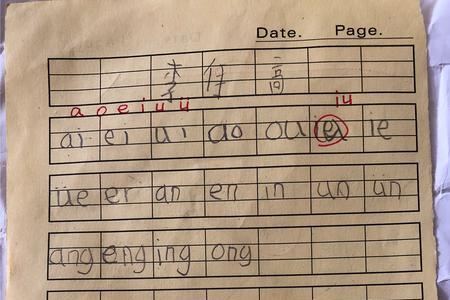 Date. Page.
a o e i u ü iu
ai ei ui ao ou ie
üe er an en in un ün
ang eng ing ong